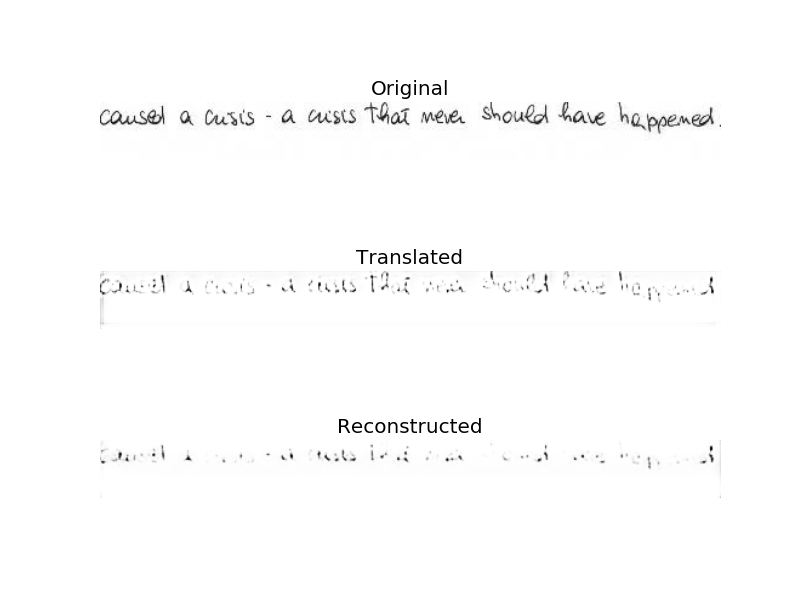 Original
caused a crisis - a crisis that never should have happened.
Translated
caused a crisis - a crisis that never should have happened
Reconstructed
caused a - a